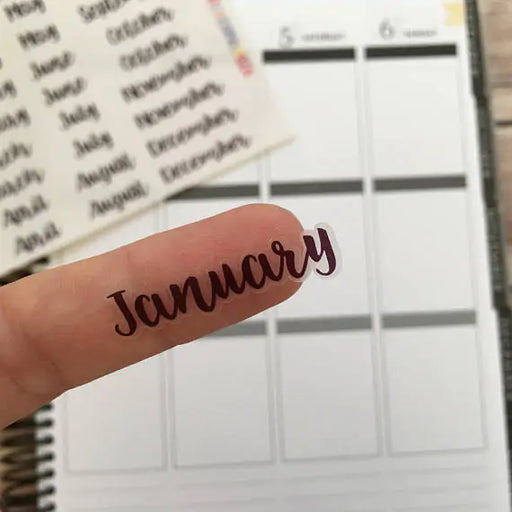 May
May
June
June
July
July
August
August
October
October
November
November
December
December
April
April
5
6
January